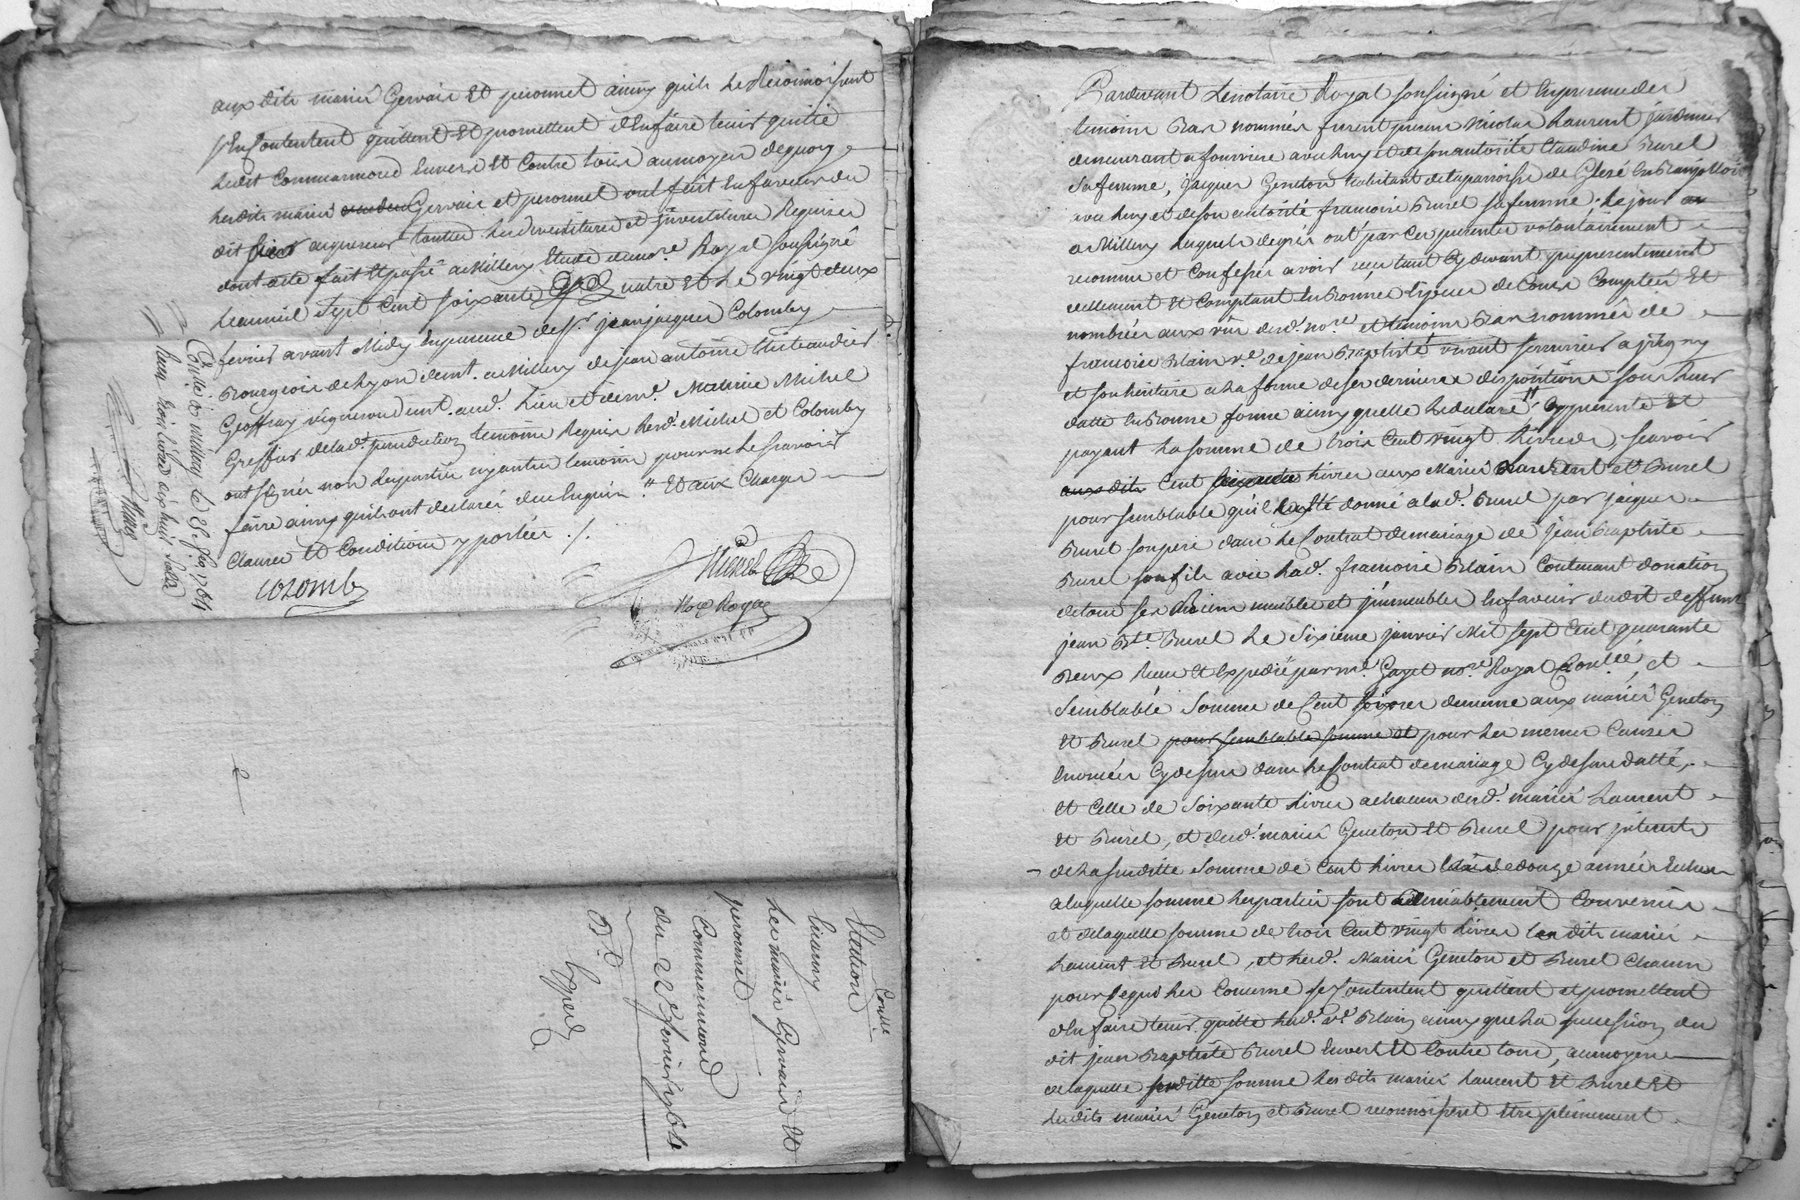 aux dits mariés Gervais et peronnet ainsy quils le Reconnoissent
s'En Contentent quittent Et promettent d'Enfaire tenir quitte
ledit Commarmond Envers Et Contre tous aumoyen dequoy
lesdits mariés Gervais et peronnet ont fait Enfaveur du
dit acquereur touttes les devestitures et jnvestitures Requises
dont acte fait Et passé a Millery Etude dudt no.re Royal soussigné
Lan mil Sept Cent soixante quatre Et Le vingt deux
fevrier avant Midy En presence de S.r jean jacques Colomby
Bourgeois de Lyon demt. a Millery de jean antoine
Geoffray vigneron demt. aud. Lieu et de m.e Mathieu Michel
Greffier de lad. jurisdiction temoins Requis lesd. Michel et Colomby
ont signé non les parties ny autre temoin pour ne le scavoir
faire ainsy quils ont declaré de ce Enquis Et aux Charges
Clauses Et Conditions y portées ./.
Colomby
Michel
No.re Royal
Con.lé a Millery Le 25 f. 1764
Reçu
Con.lé
Quittance
les mariés Gervais Et
peronnet
Commarmond
du 22 fevrier 1764
Exped.
Pardevant Le notaire Royal soussigné et En presence des
temoins Bas nommés furent presens nicolas Laurent jardinier
demeurant a fourviere avec luy et de son autorité Claudine Burel
Safemme, jacques Geneton habitant de la parroisse de Gleizé En Beaujollois
avec luy et de son autorité francoise Burel sa femme, de jour
a Millery lesquels degrés ont par ces presentes volontairement
reconnu et Confessé avoir reçu tant Cy devant, que presentement
reellement Et Comptant En Bonnes Especes de Cours Comptées Et
nombrées aux vüe dud. no.re et temoins Bas nommés de
francoise Blain v.e de jean Baptiste vivant serrurier a jrigny
et son heritiere a la forme de ses dernieres dispositions sous leurs
datte En Bonne forme ainsy quelle le declare Cy presente Et
payant La somme de trois Cent vingt Livres, scavoir
Cent Livres aux Mariés Laurent et Burel
pour semblable qu'il a été donné a lad. Burel par jacques
Burel son pere dans Le Contrat de mariage de jean Baptiste
Burel son fils avec Lad. francoise Blain Contenant donation
de tous ses Biens meubles et jmmeubles En faveur dudit deffunt
jean B.te Burel Le Sixieme janvier Mil sept Cent quarante
Deux Reçu Et Expedié par m.e Gayet no.re Royal Con.lé, et
Semblable Somme de Cent Livres de meme aux mariés Geneton
Et Burel pour semblable somme et pour Les memes Causes
Enoncées Cy dessus dans le Contrat de mariage Cy dessus datté,
et Celle de Soixante Livres a chacun desd. mariés Laurent
Et Burel, et desd. mariés Geneton Et Burel pour jnterets
de La susditte Somme de Cent Livres de douze années Echus
a laquelle somme les parties sont amiablement Convenus
et de laquelle somme de trois Cent vingt Livres les dits mariés
Laurent Et Burel, et lesd. Mariés Geneton et Burel Chacun
pour Ce qui les Concerne se Contentent quittent et promettent
d'En faire tenir quitte Lad. v.e Blain ainsy que La succession du
dit jean Baptiste Burel Envers Et Contre tous, aumoyen
de laquelle susditte somme les dits mariés Laurent Et Burel Et
les dits mariés Geneton et Burel reconnoissent Etre pleinement